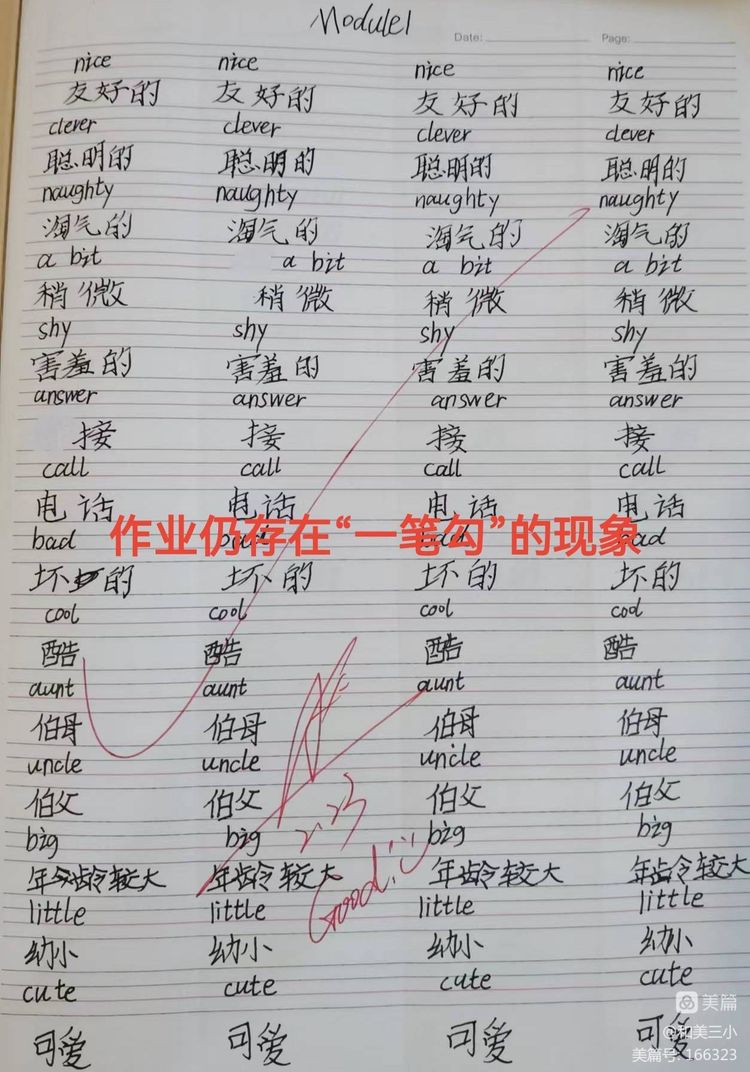 Module1
Date:
Page:
nice nice nice nice
友好的 友好的 友好的 友好的
clever clever clever clever
聪明的 聪明的 聪明的 聪明的
naughty naughty naughty naughty
淘气的 淘气的 淘气的 淘气的
a bit a bit a bit a bit
稍微 稍微 稍微 稍微
shy shy shy shy
害羞的 害羞的 害羞的 害羞的
answer answer answer answer
接 接 接 接
call call call call
电话 电话 电话 电话
作业仍存在“一笔勾”的现象
bad bad bad bad
坏的 坏的 坏的 坏的
cool cool cool cool
酷 酷 酷 酷
aunt aunt aunt aunt
伯母 伯母 伯母 伯母
uncle uncle uncle uncle
伯父 伯父 伯父 伯父
big big big big
2.23
年龄较大 年龄较大 年龄较大 年龄较大
Good!
little little little little
幼小 幼小 幼小 幼小
cute cute cute cute
可爱 可爱 可爱 可爱
美篇
@和美三小
美篇号: 166323